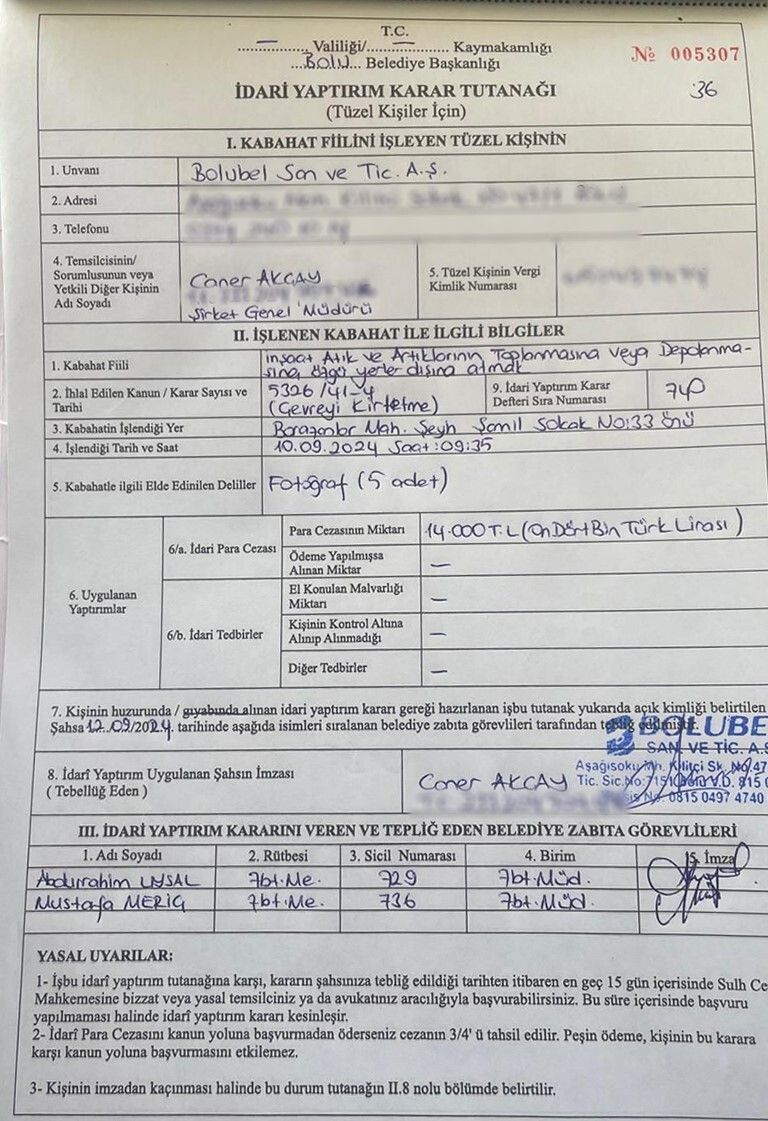 T.C.
.................. Valiliği/.................. Kaymakamlığı
...BOLU... Belediye Başkanlığı
№ 005307
36
İDARİ YAPTIRIM KARAR TUTANAĞI
(Tüzel Kişiler İçin)
I. KABAHAT FİİLİNİ İŞLEYEN TÜZEL KİŞİNİN
1. Unvanı Bolubel San ve Tic. A.Ş.
2. Adresi
3. Telefonu
4. Temsilcisinin/ Sorumlusunun veya Yetkili Diğer Kişinin Adı Soyadı
Caner AKÇAY
Şirket Genel Müdürü
5. Tüzel Kişinin Vergi Kimlik Numarası
II. İŞLENEN KABAHAT İLE İLGİLİ BİLGİLER
1. Kabahat Fiili İnşaat Atık ve Artıklarının Toplanmasına veya Depolanma-
sına, özgü yerler dışına atmak
2. İhlal Edilen Kanun / Karar Sayısı ve Tarihi
5326/41-4
(Çevreyi Kirletme)
9. İdari Yaptırım Karar Defteri Sıra Numarası
740
3. Kabahatin İşlendiği Yer Borazanlar Mah. Şeyh Şamil Sokak No:33 önü
4. İşlendiği Tarih ve Saat 10.09.2024 Saat:09:35
5. Kabahatle ilgili Elde Edinilen Deliller Fotoğraf (5 adet)
6. Uygulanan Yaptırımlar
6/a. İdari Para Cezası
Para Cezasının Miktarı 14.000 T.L (OnDörtBin Türk Lirası)
Ödeme Yapılmışsa Alınan Miktar —
6/b. İdari Tedbirler
El Konulan Malvarlığı Miktarı —
Kişinin Kontrol Altına Alınıp Alınmadığı —
Diğer Tedbirler —
7. Kişinin huzurunda / gıyabında alınan idari yaptırım kararı gereği hazırlanan işbu tutanak yukarıda açık kimliği belirtilen
Şahsa 12.09/2024 tarihinde aşağıda isimleri sıralanan belediye zabıta görevlileri tarafından tebliğ edilmiştir.
BOLUBE
SAN. VE TİC. A.Ş
Aşağısoku Mh. Kilitçi Sk. No:47
Tic. Sic.No:7151 Bolu V.D. 815 0
No: 0815 0497 4740
8. İdarî Yaptırım Uygulanan Şahsın İmzası
( Tebellüğ Eden )
Caner AKÇAY
III. İDARİ YAPTIRIM KARARINI VEREN VE TEPLİĞ EDEN BELEDİYE ZABITA GÖREVLİLERİ
1. Adı Soyadı 2. Rütbesi 3. Sicil Numarası 4. Birim 5. İmza
Abdurrahim UYSAL Zbt.Me. 729 Zbt.Müd.
Mustafa MERİÇ Zbt.Me. 736 Zbt.Müd.
YASAL UYARILAR:
1- İşbu idarî yaptırım tutanağına karşı, kararın şahsınıza tebliğ edildiği tarihten itibaren en geç 15 gün içerisinde Sulh Ce
Mahkemesine bizzat veya yasal temsilciniz ya da avukatınız aracılığıyla başvurabilirsiniz. Bu süre içerisinde başvuru
yapılmaması halinde idarî yaptırım kararı kesinleşir.
2- İdarî Para Cezasını kanun yoluna başvurmadan öderseniz cezanın 3/4' ü tahsil edilir. Peşin ödeme, kişinin bu karara
karşı kanun yoluna başvurmasını etkilemez.
3- Kişinin imzadan kaçınması halinde bu durum tutanağın II.8 nolu bölümde belirtilir.